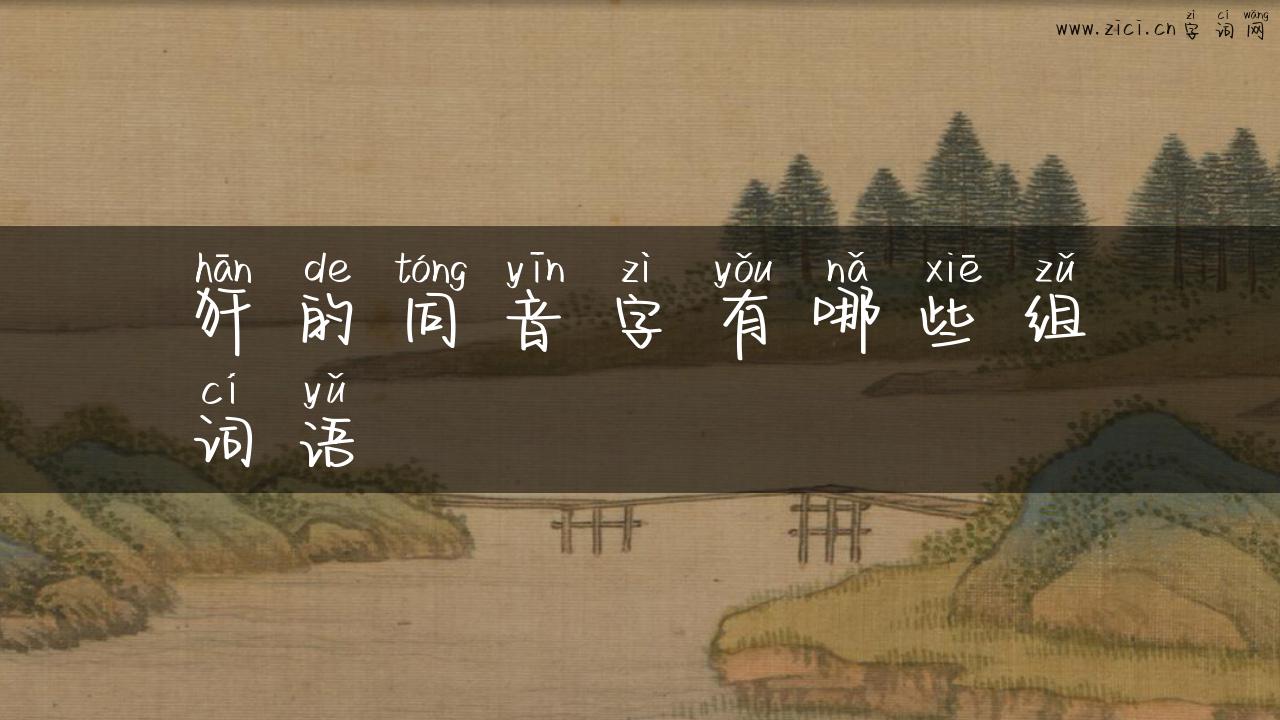 www.zici.cn 字词网
zì cí wǎng
hān de tóng yīn zì yǒu nǎ xiē zǔ
犴的同音字有哪些组
cí yǔ
词语